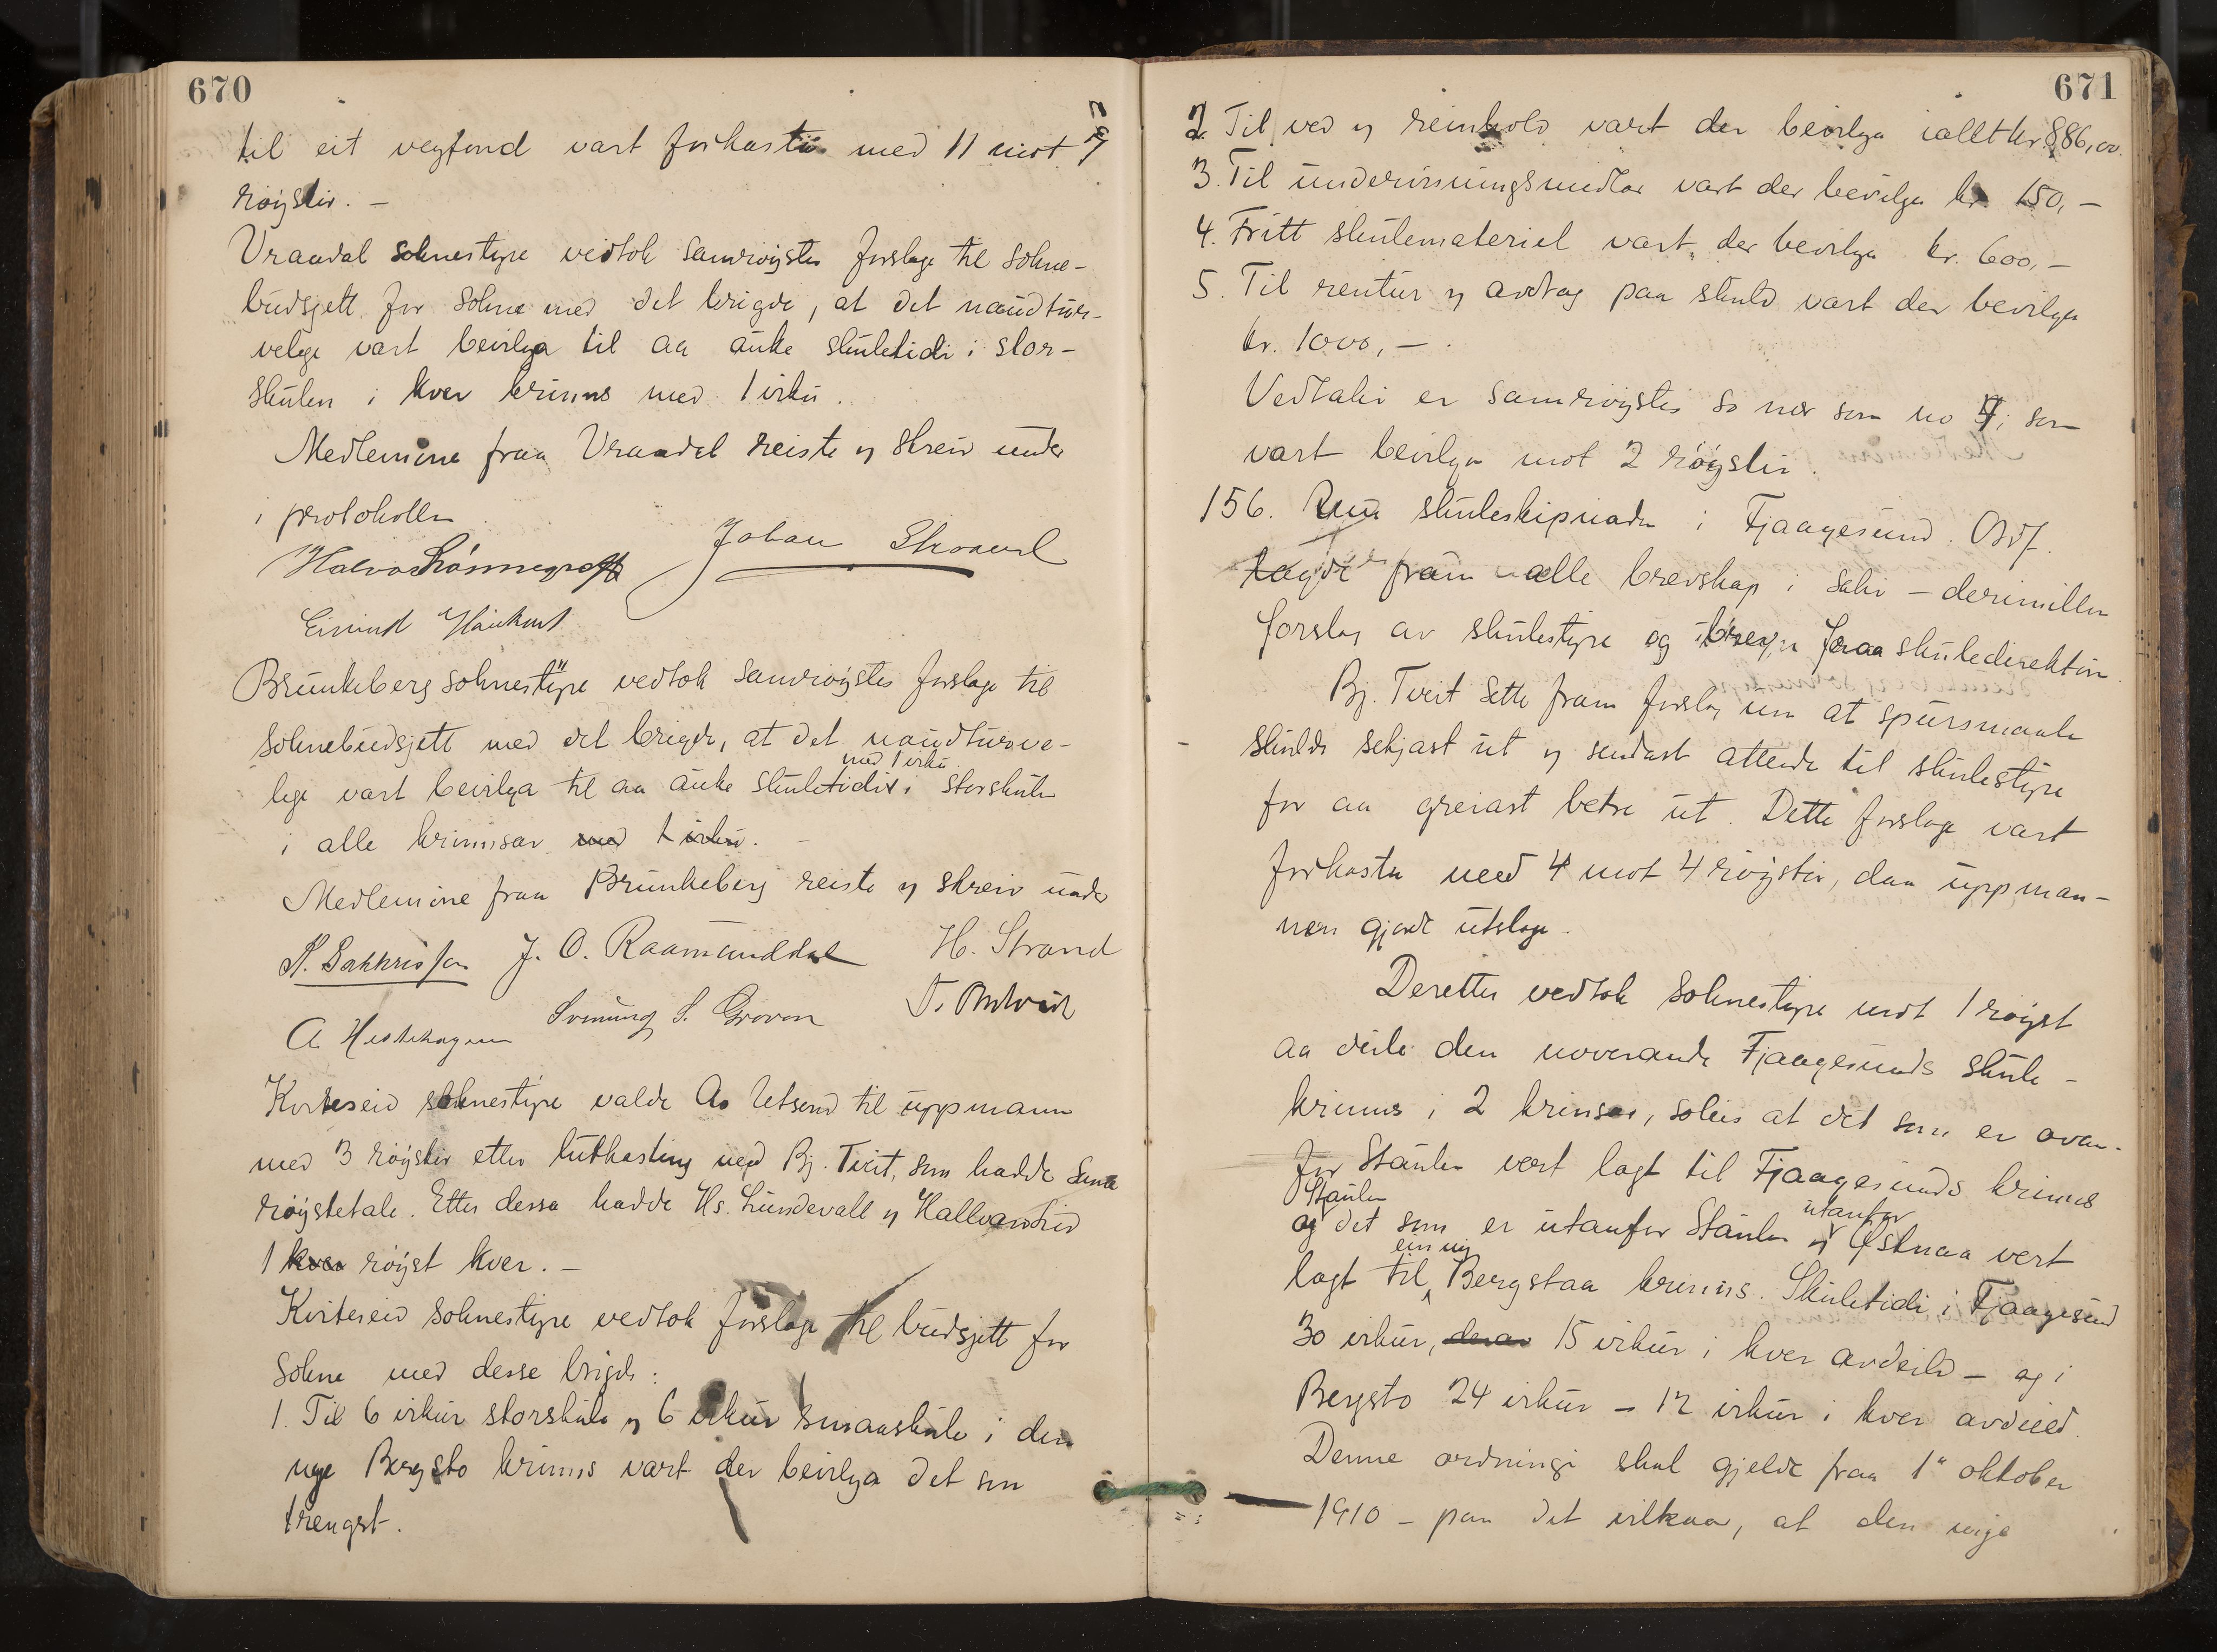 670
til eit vegfond vart forkasta med 11 mot 7
røyster. —
Vraadal soknestyre vedtok samrøystes forslage til sokne-
budsjett for sokne med det brigde, at det naudtur-
velege vart bevilga til aa auke skuletidi i stor-
skulen i kver krinns med 1 viku.
Medlemine fraa Vraadal reiste og skreiv under
i protokollen
Johan Skomedal
Halvor Lønnegraff
Eivind Haukum
Brunkeberg soknestyre vedtok samrøystes forslage til
soknebudsjett med det brigde, at det naudturve-
med 1 viku
lege vart bevilga til aa auke skuletidi i storskulen
i alle krinnsar med 1 viku.
Medlemine fraa Brunkeberg reiste og skreiv under
K. Sakkrisson J. O. Raamunddal H. Strand
A Hestehagen Sveinung S. Groven T.
Kviteseid soknestyre valde As Utsund til uppmann
med 3 røyster etter lutkasting med Bj. Tveit, som hadde same
røystetale. Etter dessa hadde Hs. Lundevall og Hallvard Lid
1 kver røyst kver. —
Kviteseid soknestyre vedtok forslage til budsjett for
sokne med desse brigde:
1. Til 6 vikur storskule og 6 vikur smaaskule i den
nye Bergsto krinns vart der bevilga det som
trengst.
671
2. Til ved og reinhold vart der bevilga ialt kr. 886,00.
3. Til undervisningsmidlar vart der bevilga kr. 150,—
4. Fritt skulemateriel vart der bevilga kr. 600,—
5. Til rentur og avdrag paa skuld vart der bevilga
kr. 1000,— .
Vedtaki er samrøystes so nær som no 4, som
vart bevilga mot 2 røyster.
156. Um skuleskipnaden i Fjaagesund. Ordf.
lagde fram alle brevskap i saki — derimillom
forslag av skulestyre og brev fraa skuledirektøren.
Bj. Tveit sette fram forslag um at spursmaale
skulde setjast ut og sendast attende til skulestyre
for aa greiast betre ut. Dette forslage vart
forkasta med 4 mot 4 røyster, daa uppman-
nen gjorde utslage.
Deretter vedtok soknestyre mot 1 røyst
aa deile den noverande Fjaagesunds skule-
krinns i 2 krinsar, soleis at det som er ovan-
for Staulen vert lagt til Fjaagesunds krinns
Staulen utanfor
og det som er utanfor Staulen og Østnaa vert
ein ny
lagt til Bergstaa krinns. Skuletidi i Fjaagesund
30 vikur, derav 15 vikur i kver avdeild — og i
Bergsto 24 vikur — 12 vikur i kver avdeild.
Denne ordningi skal gjelde fraa 1" oktober
1910 — paa det vilkaar, at den nye